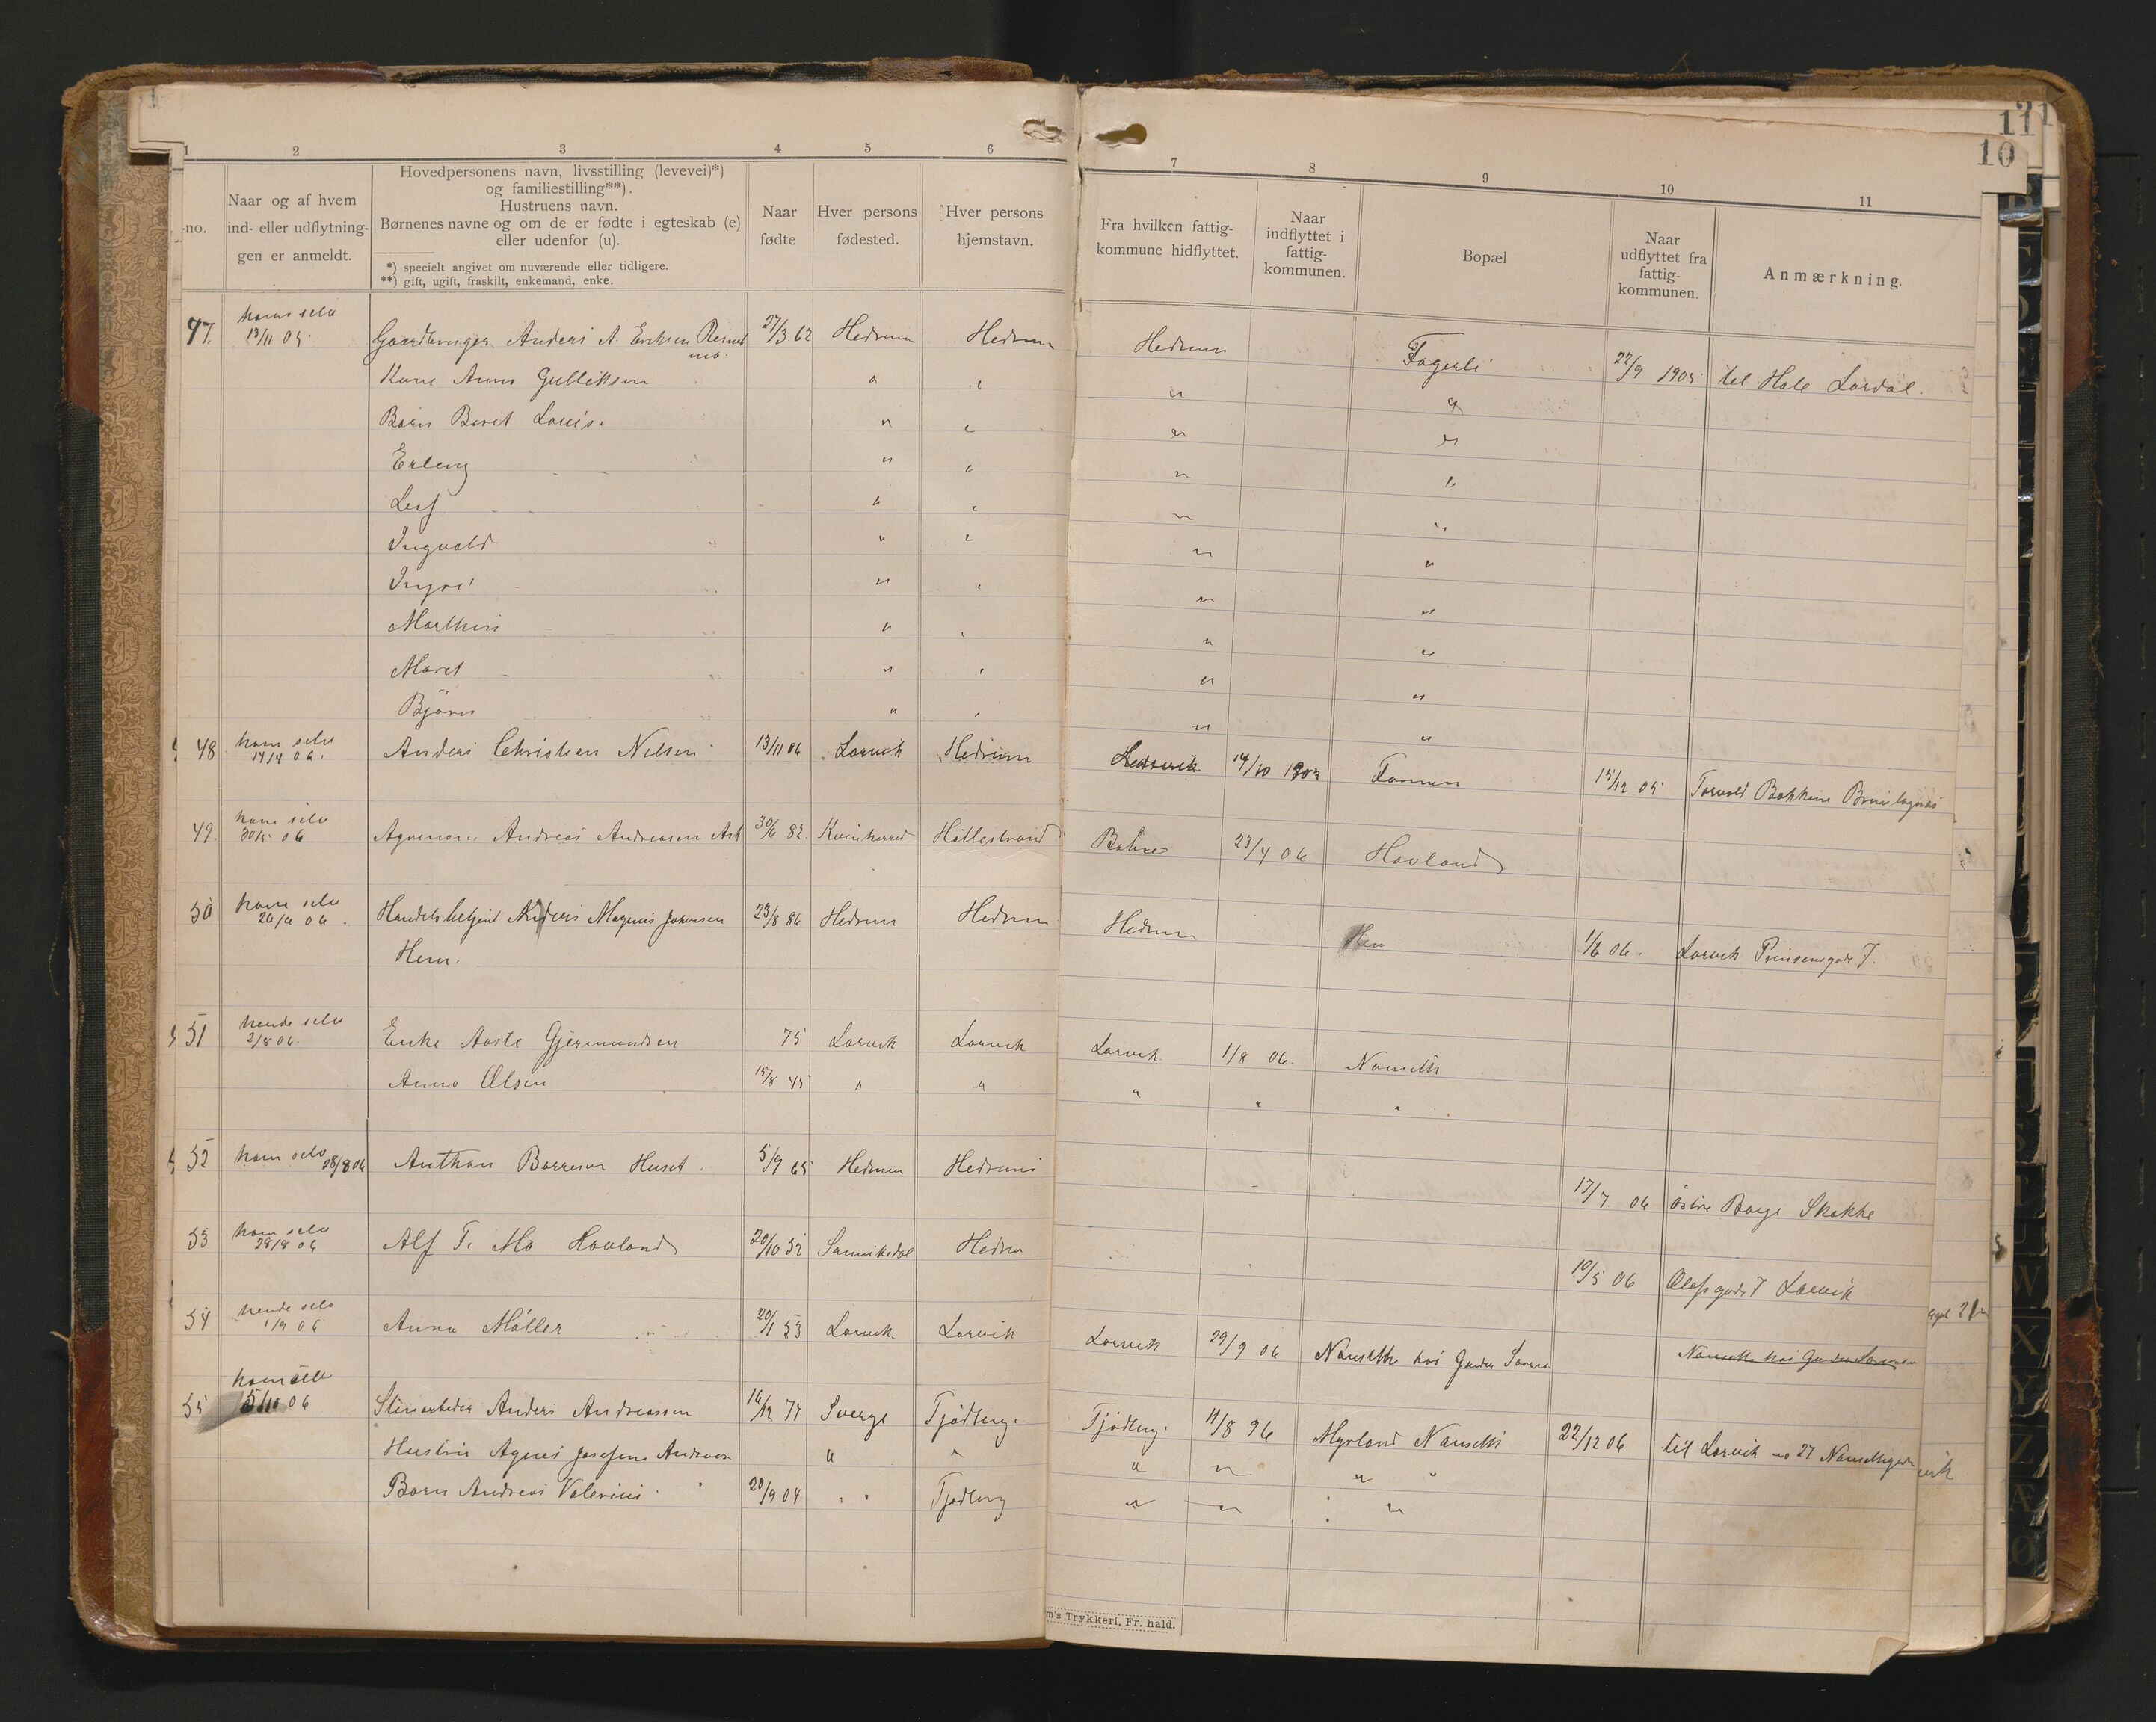 1 2 3 4 5 6 7 8 9 10 11
11
10
no.
Naar og af hvem
ind- eller udflytnin-
gen er anmeldt.
Hovedpersonens navn, livsstilling (levevei)*)
og familiestilling**).
Hustruens navn.
Børnenes navne og om de er fødte i egteskab (e)
eller udenfor (u).
*) specielt angivet om nuværende eller tidligere.
**) gift, ugift, fraskilt, enkemand, enke.
Naar
fødte
Hver persons
fødested.
Hver persons
hjemstavn.
Fra hvilken fattig-
kommune hidflyttet.
Naar
indflyttet i
fattig-
kommunen.
Bopæl
Naar
udflyttet fra
fattig-
kommunen.
Anmærkning.
ham selv
47. 13/11 05. Gaardbruger Anders A. Eriksen 27/3 62 Hedrum Hedrum Hedrum Fagerli 22/9 1905 til Hole Lardal.
Kone Anna Gulliksen " " " "
Barn Berit Louise " " " "
Erling " " " "
Leif " " " "
Ingvald " " " "
Ingrid " " " "
Marthin " " " "
Maret " " " "
Bjørn " " " "
48 ham selv 14/4 06. Anders Christian Nilsen 13/11 06 Larvik Hedrum 14/10 1905 Farmen 15/12 05 Torvald Bakkene Brunlagnes
49. ham selv 30/5 06 Agronom Andreas Andreassen Ask 30/6 82. Kvinherred Hollestrand Botne 23/4 06 Hovland
50 ham selv 26/6 06. Handelsbetjent Anders Magnus Johansen 23/8 86 Hedrum Hedrum Hedrum Hem 1/6 06. Larvik Prinsensgade 7.
Hem.
51 hende selv 2/8 06. Enke Aaste Gjermundsen 75 Larvik Larvik Larvik 1/8 06. Nanseth
Anna Olsen 15/8 45 " " " " "
52 ham selv 28/8 06 Anthon Borresen Huset. 5/9 65 Hedrum Hedrum 17/7 06 östre Borge Skokke
53 ham selv 28/8 06 Alf T. Mo Hovland 20/10 52 Sannikedal Hedrum 10/5 06 Olafsgade 7 Larvik
54 hende selv 1/9 06 Anna Möller 20/1 53 Larvik Larvik Larvik 29/9 06 Nanseth hos Gunder
Nanseth hos Gunder
ham selv
55 5/11 06 Stenarbeider Anders Andreassen 16/12 77 Sverge Tjödling. Tjödling. 11/8 96 Myrland Nanseth 22/12 06 til Larvik no 27 Nansethgaden
Hustru Agnes Josefine Andreasen " " " " " "
Barn Andreas Valerius 20/9 04 " " Tjödling " " " "
m's Trykkeri, Fr. hald.
X Y Z Æ Ø